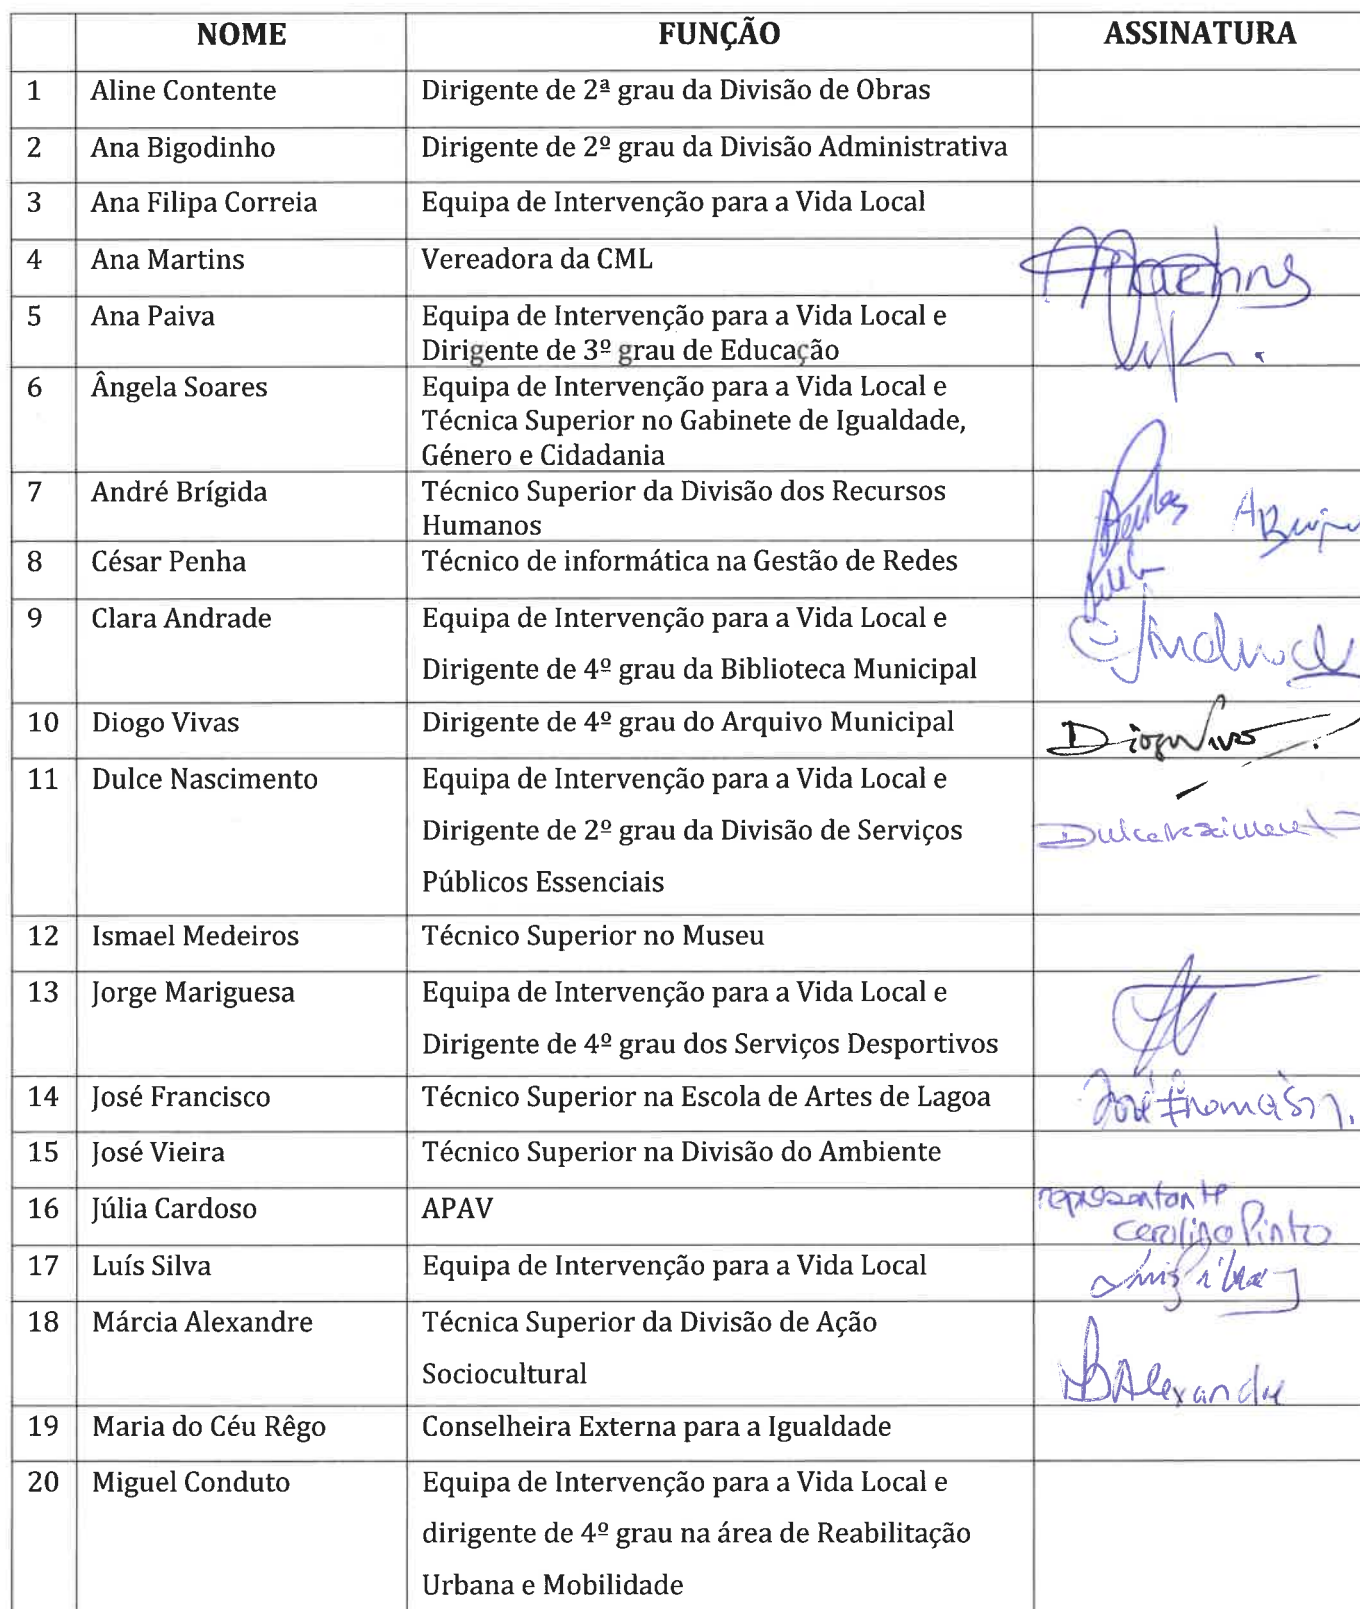 NOME FUNÇÃO ASSINATURA
1 Aline Contente Dirigente de 2ª grau da Divisão de Obras
2 Ana Bigodinho Dirigente de 2º grau da Divisão Administrativa
3 Ana Filipa Correia Equipa de Intervenção para a Vida Local
4 Ana Martins Vereadora da CML AMartins
5 Ana Paiva Equipa de Intervenção para a Vida Local e
Dirigente de 3º grau de Educação
6 Ângela Soares Equipa de Intervenção para a Vida Local e
Técnica Superior no Gabinete de Igualdade,
Género e Cidadania
7 André Brígida Técnico Superior da Divisão dos Recursos
Humanos
8 César Penha Técnico de informática na Gestão de Redes
9 Clara Andrade Equipa de Intervenção para a Vida Local e
Dirigente de 4º grau da Biblioteca Municipal
10 Diogo Vivas Dirigente de 4º grau do Arquivo Municipal Diogo Vivas
11 Dulce Nascimento Equipa de Intervenção para a Vida Local e
Dirigente de 2º grau da Divisão de Serviços
Públicos Essenciais
Dulce Nascimento
12 Ismael Medeiros Técnico Superior no Museu
13 Jorge Mariguesa Equipa de Intervenção para a Vida Local e
Dirigente de 4º grau dos Serviços Desportivos
14 José Francisco Técnico Superior na Escola de Artes de Lagoa José
15 José Vieira Técnico Superior na Divisão do Ambiente
16 Júlia Cardoso APAV representante
Carolina Pinto
17 Luís Silva Equipa de Intervenção para a Vida Local Luis Silva
18 Márcia Alexandre Técnica Superior da Divisão de Ação
Sociocultural
Alexandre
19 Maria do Céu Rêgo Conselheira Externa para a Igualdade
20 Miguel Conduto Equipa de Intervenção para a Vida Local e
dirigente de 4º grau na área de Reabilitação
Urbana e Mobilidade